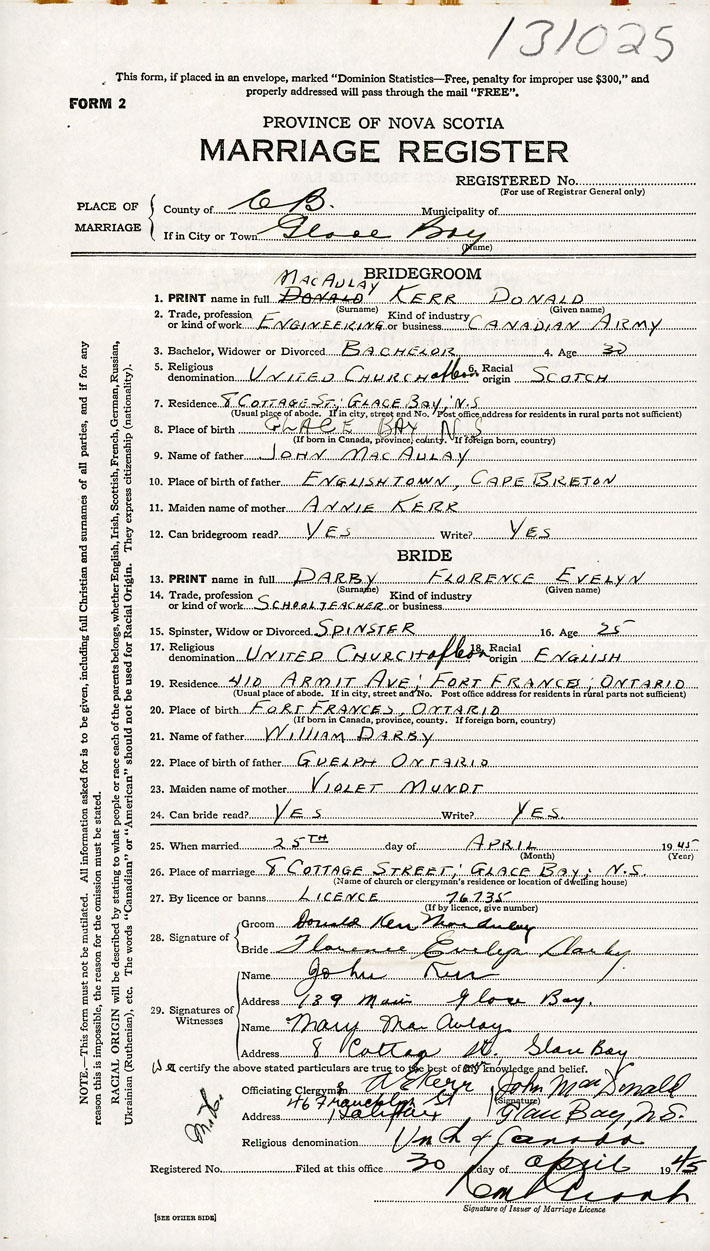 131025
This form, if placed in an envelope, marked "Dominion Statistics—Free, penalty for improper use $300," and
properly addressed will pass through the mail "FREE".
FORM 2
PROVINCE OF NOVA SCOTIA
MARRIAGE REGISTER
REGISTERED No.
(For use of Registrar General only)
PLACE OF MARRIAGE
County of C B. Municipality of
If in City or Town Glace Bay
(Name)
BRIDEGROOM
MACAULAY
1. PRINT name in full DONALD KERR DONALD
(Surname) (Given name)
2. Trade, profession or kind of work ENGINEERING Kind of industry or business CANADIAN ARMY
3. Bachelor, Widower or Divorced BACHELOR 4. Age 30
5. Religious denomination UNITED CHURCH of Can 6. Racial origin SCOTCH
7. Residence 8 COTTAGE ST; GLACE BAY; N.S
(Usual place of abode. If in city, street and No. Post office address for residents in rural parts not sufficient)
8. Place of birth GLACE BAY N.S
(If born in Canada, province, county. If foreign born, country)
9. Name of father JOHN MACAULAY
10. Place of birth of father ENGLISHTOWN, CAPE BRETON
11. Maiden name of mother ANNIE KERR
12. Can bridegroom read? YES Write? YES
BRIDE
13. PRINT name in full DARBY FLORENCE EVELYN
(Surname) (Given name)
14. Trade, profession or kind of work SCHOOLTEACHER Kind of industry or business
15. Spinster, Widow or Divorced SPINSTER 16. Age 25
17. Religious denomination UNITED CHURCH of Can 18. Racial origin ENGLISH
19. Residence 410 ARMIT AVE; FORT FRANCES; ONTARIO
(Usual place of abode. If in city, street and No. Post office address for residents in rural parts not sufficient)
20. Place of birth FORT FRANCES, ONTARIO
(If born in Canada, province, county. If foreign born, country)
21. Name of father WILLIAM DARBY
22. Place of birth of father GUELPH ONTARIO
23. Maiden name of mother VIOLET MUNDT
24. Can bride read? YES Write? YES.
25. When married 25TH day of APRIL 1945
(Month) (Year)
26. Place of marriage 8 COTTAGE STREET; GLACE BAY; N.S.
(Name of church or clergyman's residence or location of dwelling house)
27. By licence or banns LICENCE 76735
(If by licence, give number)
28. Signature of
Groom Donald Kerr MacAulay
Bride Florence Evelyn Darby
29. Signatures of Witnesses
Name John Kerr
Address 189 Main Glace Bay.
Name Mary MacAulay
Address 8 Cottage St. Glace Bay
I certify the above stated particulars are true to the best of my knowledge and belief.
Officiating Clergyman A E Kerr John MacDonald
(Signature)
Address 46 Francklyn St Halifax Glace Bay, N.S.
Religious denomination Un Ch of Canada
Registered No. Filed at this office 30 day of April 1945
Signature of Issuer of Marriage Licence
[SEE OTHER SIDE]
NOTE.—This form must not be mutilated. All information asked for is to be given, including full Christian and surnames of all parties, and if for any
reason this is impossible, the reason for the omission must be stated.
RACIAL ORIGIN will be described by stating to what people or race each of the parents belongs, whether English, Irish, Scottish, French, German, Russian,
Ukrainian (Ruthenian), etc. The words "Canadian" or "American" should not be used for Racial Origin. They express citizenship (nationality).